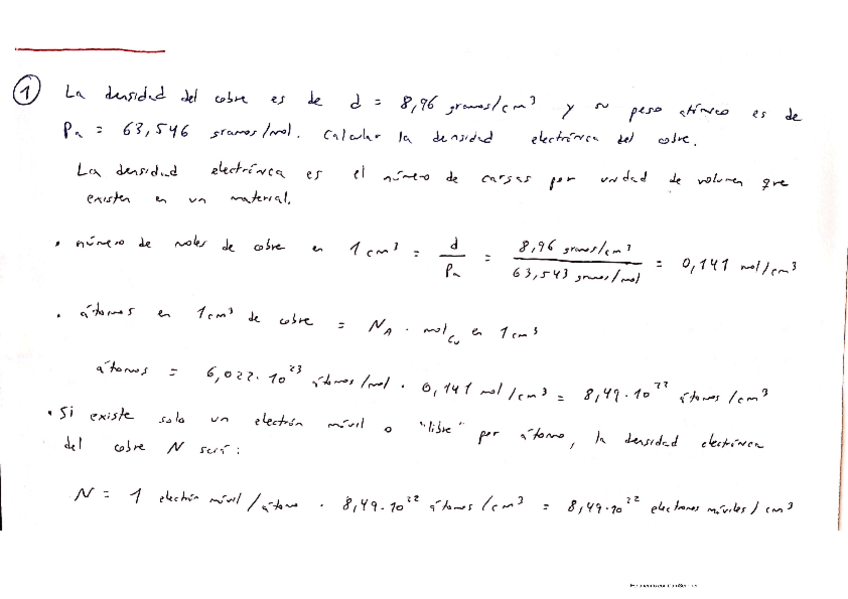 1 La densidad del cobre es de d = 8,96 gramos/cm³ y su peso atómico es de
Pa = 63,546 gramos/mol. Calcular la densidad electrónica del cobre.
La densidad electrónica es el número de cargas por unidad de volumen que
existen en un material.
• número de moles de cobre en 1 cm³ = d / Pa = 8,96 gramos/cm³ / 63,543 gramos/mol = 0,141 mol/cm³
• átomos en 1cm³ de cobre = NA · molCu en 1 cm³
átomos = 6,022·10²³ átomos/mol · 0,141 mol/cm³ = 8,49·10²² átomos/cm³
• Si existe solo un electrón móvil o "libre" por átomo, la densidad electrónica
del cobre N será:
N = 1 electrón móvil/átomo · 8,49·10²² átomos/cm³ = 8,49·10²² electrones móviles/cm³